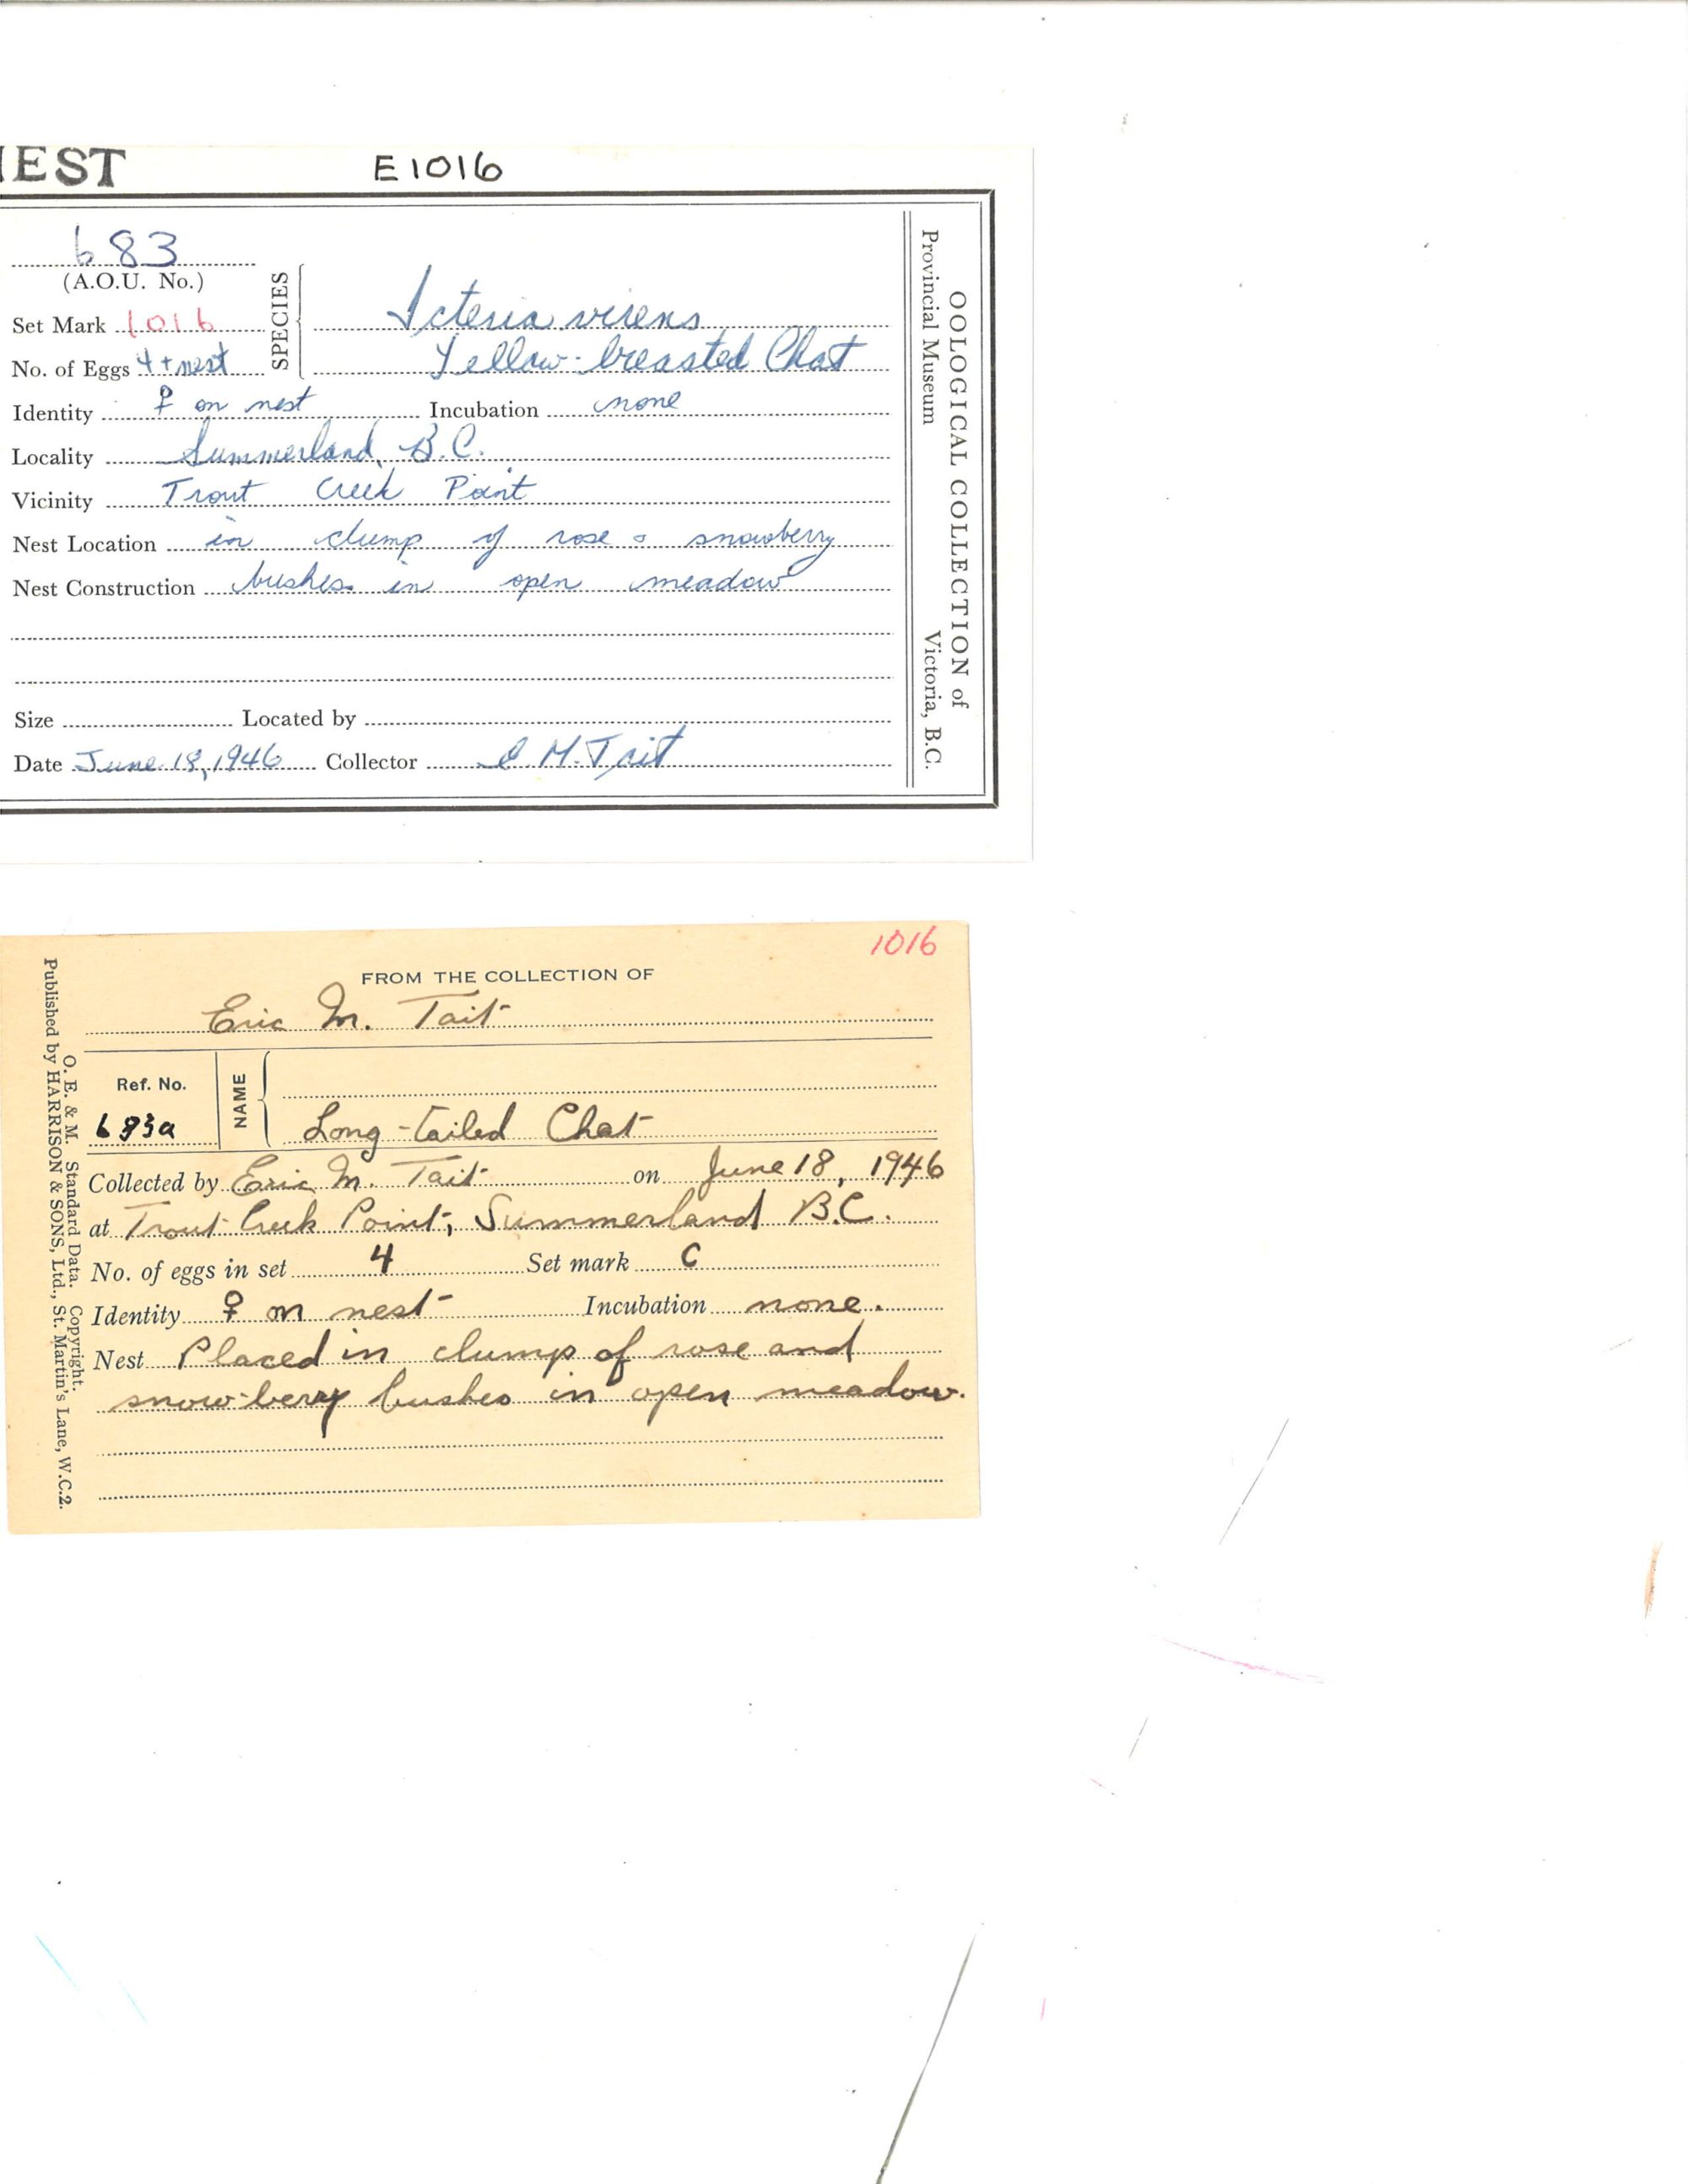 IEST E1016
683
(A.O.U. No.)
Set Mark 1016
No. of Eggs 4 + nest
SPECIES
Icteria virens
Yellow-breasted Chat
Identity ♀ on nest Incubation none
Locality Summerland, B.C.
Vicinity Trout Creek Point
Nest Location in clump of rose & snowberry
Nest Construction bushes in open meadow
Size Located by
Date June 18, 1946 Collector E M. Tait
OOLOGICAL COLLECTION of
Provincial Museum Victoria, B.C.
1016
FROM THE COLLECTION OF
Eric M. Tait
Ref. No.
683a
NAME
Long-tailed Chat
Collected by Eric M. Tait on June 18, 1946
at Trout Creek Point, Summerland B.C.
No. of eggs in set 4 Set mark C
Identity ♀ on nest Incubation none.
Nest Placed in clump of rose and
snow-berry bushes in open meadow.
O. E. & M. Standard Data. Copyright.
Published by HARRISON & SONS, Ltd., St. Martin's Lane, W.C.2.